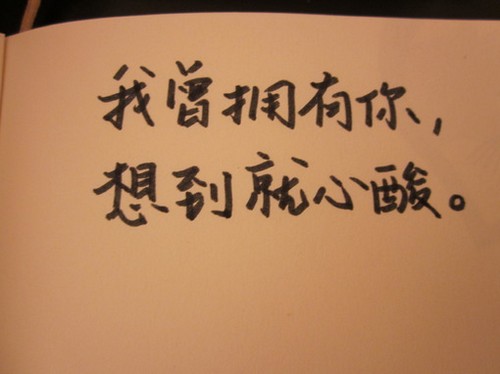 我曾拥有你,
想到就心酸。